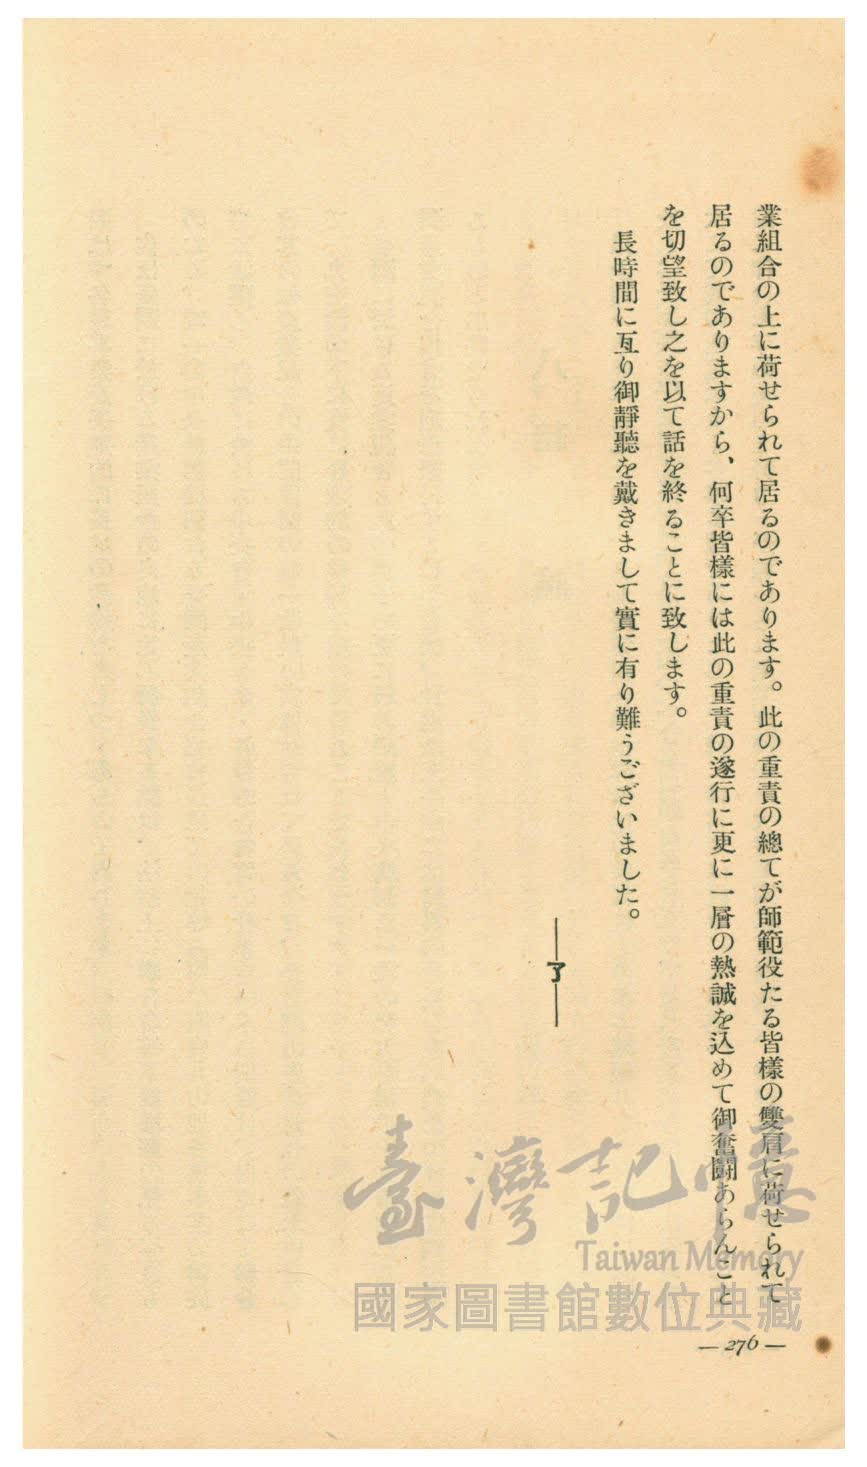 業組合の上に荷せられて居るのであります。此の重責の總てが師範役たる皆樣の雙肩に荷せられて
居るのでありますから、何卒皆樣には此の重責の遂行に更に一層の熱誠を込めて御奮鬪あらんこと
を切望致し之を以て話を終ることに致します。
長時間に亙り御靜聽を戴きまして實に有り難うございました。
―了―
臺灣記憶
Taiwan Memory
國家圖書館數位典藏
— 276 —